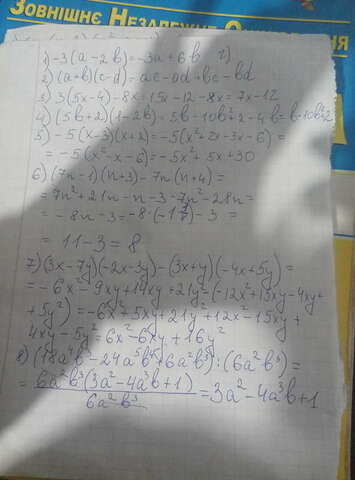 ЗОВНІШНЄ НЕЗАЛЕЖНЕ О
1) -3(a-2b)=-3a+6b
2) (a+b)(c-d)=ac-ad+bc-bd
3) 3(5x-4)-8x=15x-12-8x=7x-12
4) (5b+2)(1-2b)=5b-10b²+2-4b=b-10b²+2
5) -5(x-3)(x+2)=-5(x²+2x-3x-6)=
=-5(x²-x-6)=-5x²+5x+30
6) (7n-1)(n+3)-7n(n+4)=
=7n²+21n-n-3-7n²-28n=
=-8n-3=-8·(-1 )-3=
=11-3=8
7) (3x-7y)(-2x-3y)-(3x+y)(-4x+5y)=
=-6x²-9xy+14xy+21y²-(-12x²+15xy-4xy+
+5y²)=-6x²+5xy+21y²+12x²-15xy+
4xy-5y²=6x²-6xy+16y²
8) (18a⁴b³-24a⁵b⁴+6a²b³):(6a²b³)=
=6a²b³(3a²-4a³b+1)
6a²b³
=3a²-4a³b+1